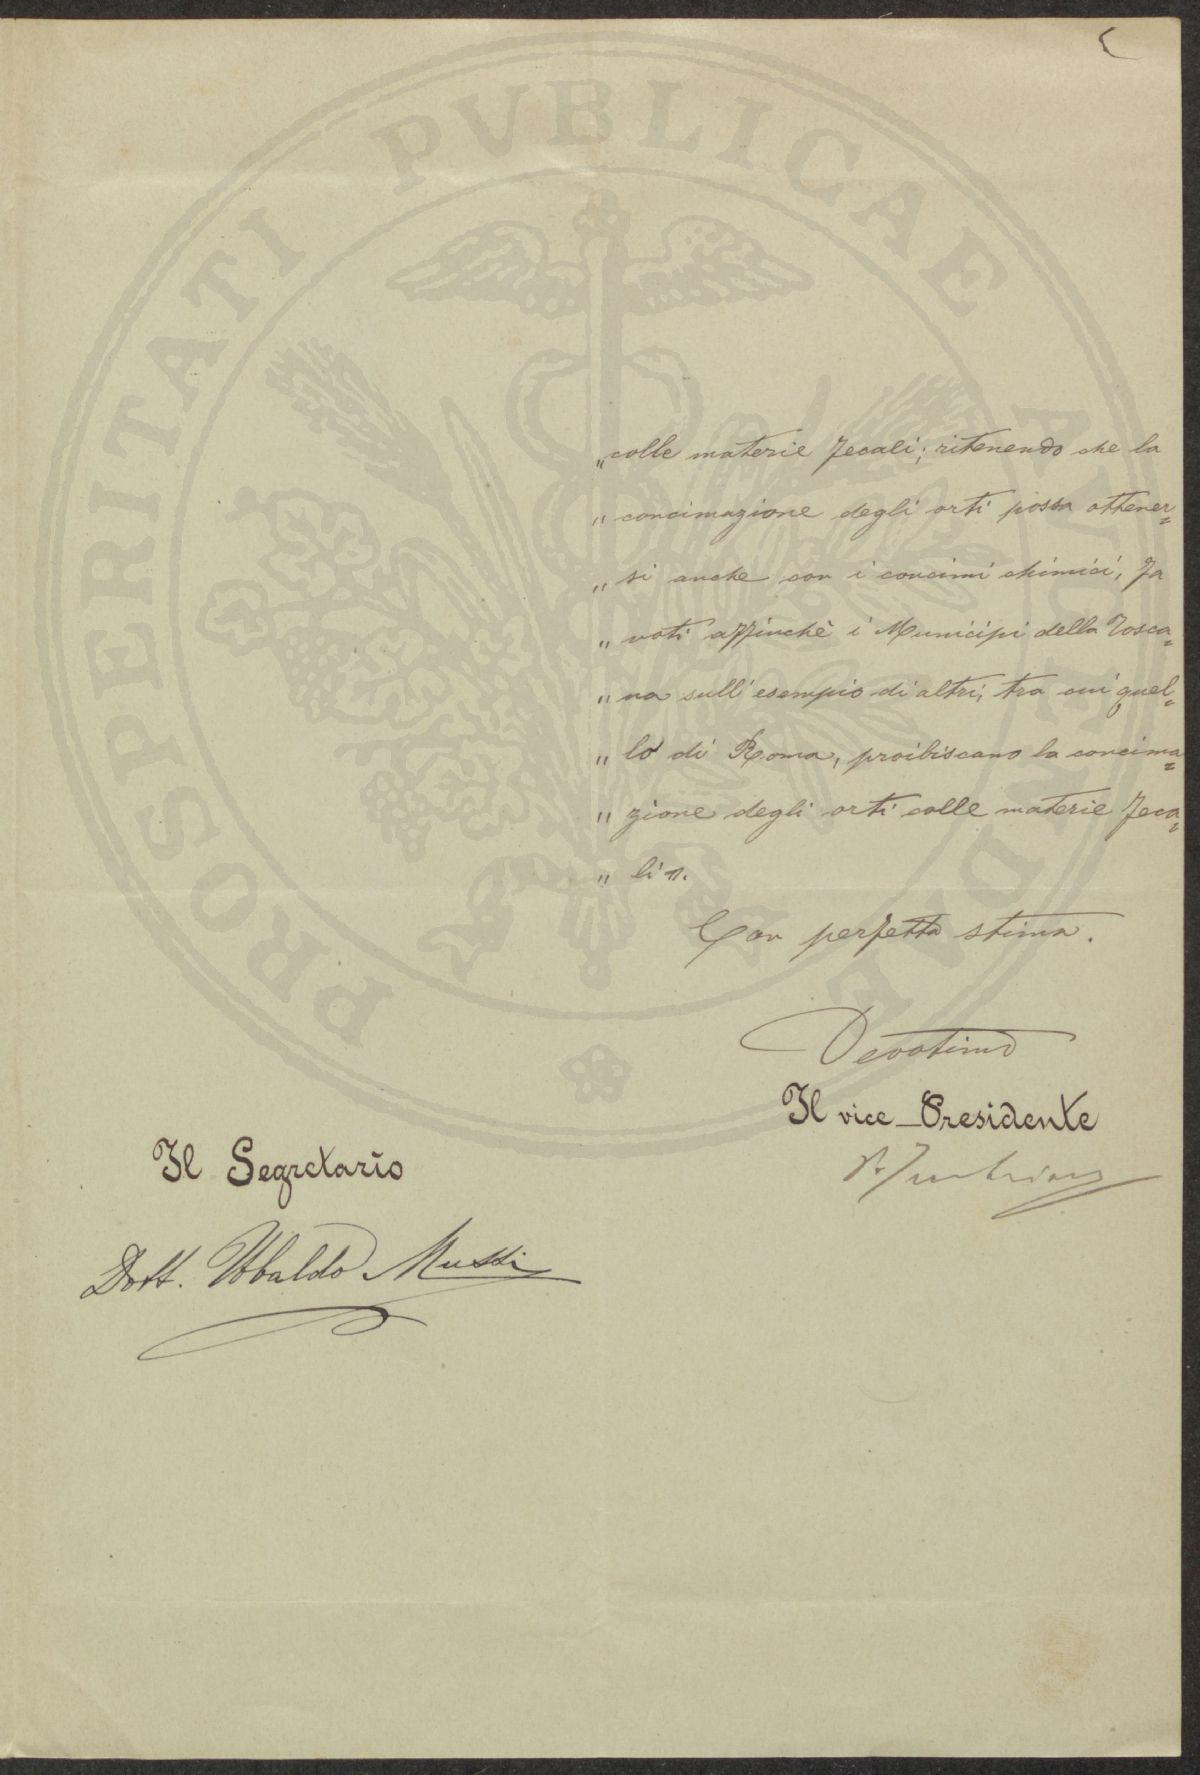 PROSPERITATI PUBLICAE AUGENDAE
„ colle materie fecali; ritenendo che la
„ concimazione degli orti possa ottener=
„ si anche con i concimi chimici, fa
„ voti affinchè i Municipi della Tosca=
„ na sull'esempio di altri, tra cui quel=
„ lo di Roma, proibiscano la concima=
„ zione degli orti colle materie feca=
„ li „.
Con perfetta stima.
Devotimo
Il vice-Presidente
Il Segretario
Dott. Ubaldo Mussi